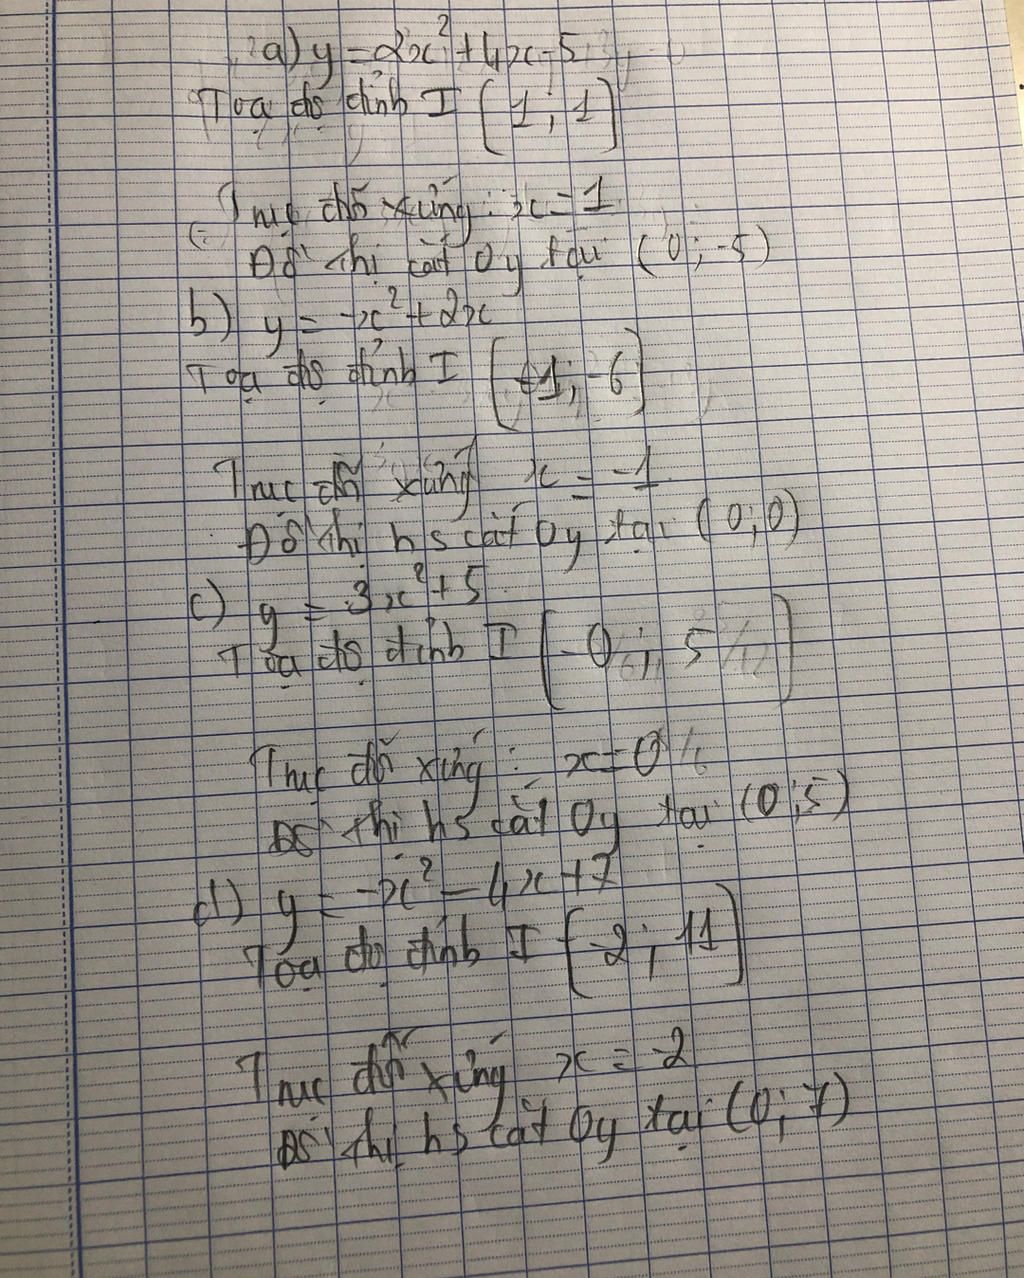 a) y = 2x² + 4x - 5
Toạ độ đỉnh I (1; 1)
Trục đối xứng: x = 1
Đồ thị cắt Oy tại (0; -5)
b) y = -x² + 2x
Toạ độ đỉnh I (-1; -6)
Trục đối xứng x = -1
Đồ thị hs cắt Oy tại (0; 0)
c) y = 3x² + 5
Tọa độ đỉnh I (-0; 5)
Trục đối xứng: x = 0
Đồ thị hs cắt Oy tại (0; 5)
d) y = -x² - 4x + 7
Tọa độ đỉnh I (-2; 11)
Trục đối xứng x = -2
Đồ thị hs cắt Oy tại (0; 7)